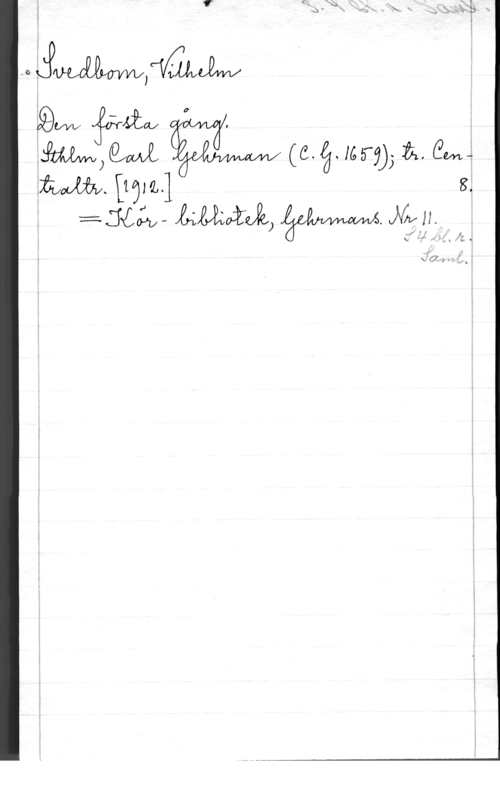 Svedbom, Vilhelm
Den första gång.
Sthlm, Carl Gehrman (C. G. 1659); tr. Cen-
traltr. [1912.] 8.
= Kör-bibliotek, Gehrmans. Nr 11.
S 4 bl. n.
Saml.